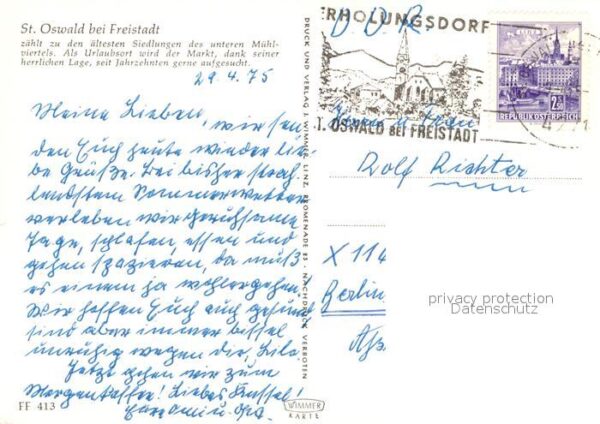 St. Oswald bei Freistadt
zählt zu den ältesten Siedlungen des unteren Mühl-
viertels. Als Urlaubsort wird der Markt, dank seiner
herrlichen Lage, seit Jahrzehnten gerne aufgesucht.
29.4.75
Meine Lieben, wir sen
den Euch heute wieder lie
be Grüße. Bei bisher strah
lendstem Sommerwetter
verleben wir geruhsame
Tage, schlafen, essen und
gehen spazieren, da muß
es einem ja wohlergehen!
Wir hoffen Euch auch gesund
sind aber immer bissel
unruhig wegen die, Lila
Jetzt gehen wir zum
Morgenkaffee! Liebes Kussel!
FF 413
DRUCK UND VERLAG J. WIMMER, LINZ, PROMENADE 23 · NACHDRUCK VERBOTEN
WIMMER
KARTE
D D R.
ERHOLUNGSDORF
ST. OSWALD BEI FREISTADT
LINZ
REPUBLIK ÖSTERREICH
Herrn u. Frau
Rolf Richter
X 114
Berlin
privacy protection
Datenschutz